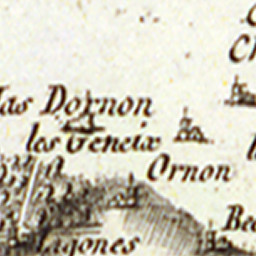 Mas Dornon
les Geneix
Ornon
Lagones